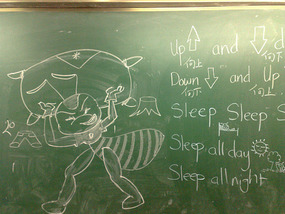 Up and d
Down and Up
Sleep Sleep S
Sleep all day
Sleep all night